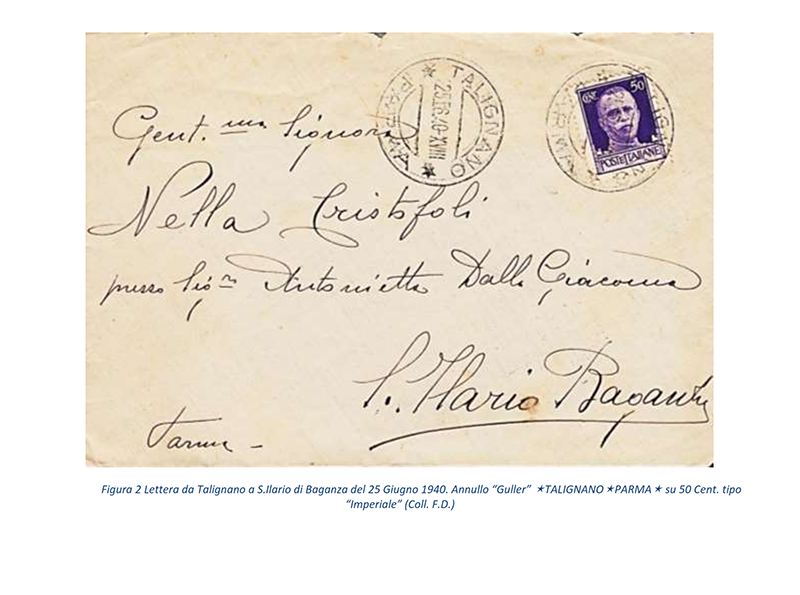 ★ TALIGNANO ★ PARMA
25.6.40-XVIII
CENT. 50
POSTE ITALIANE
Gent.ma Signora
Nella Cristofoli
presso Sig.ra Antonietta Dalla Giacoma
S. Ilario Baganza
Parma -
Figura 2 Lettera da Talignano a S.Ilario di Baganza del 25 Giugno 1940. Annullo “Guller” ★TALIGNANO★PARMA★ su 50 Cent. tipo
“Imperiale” (Coll. F.D.)